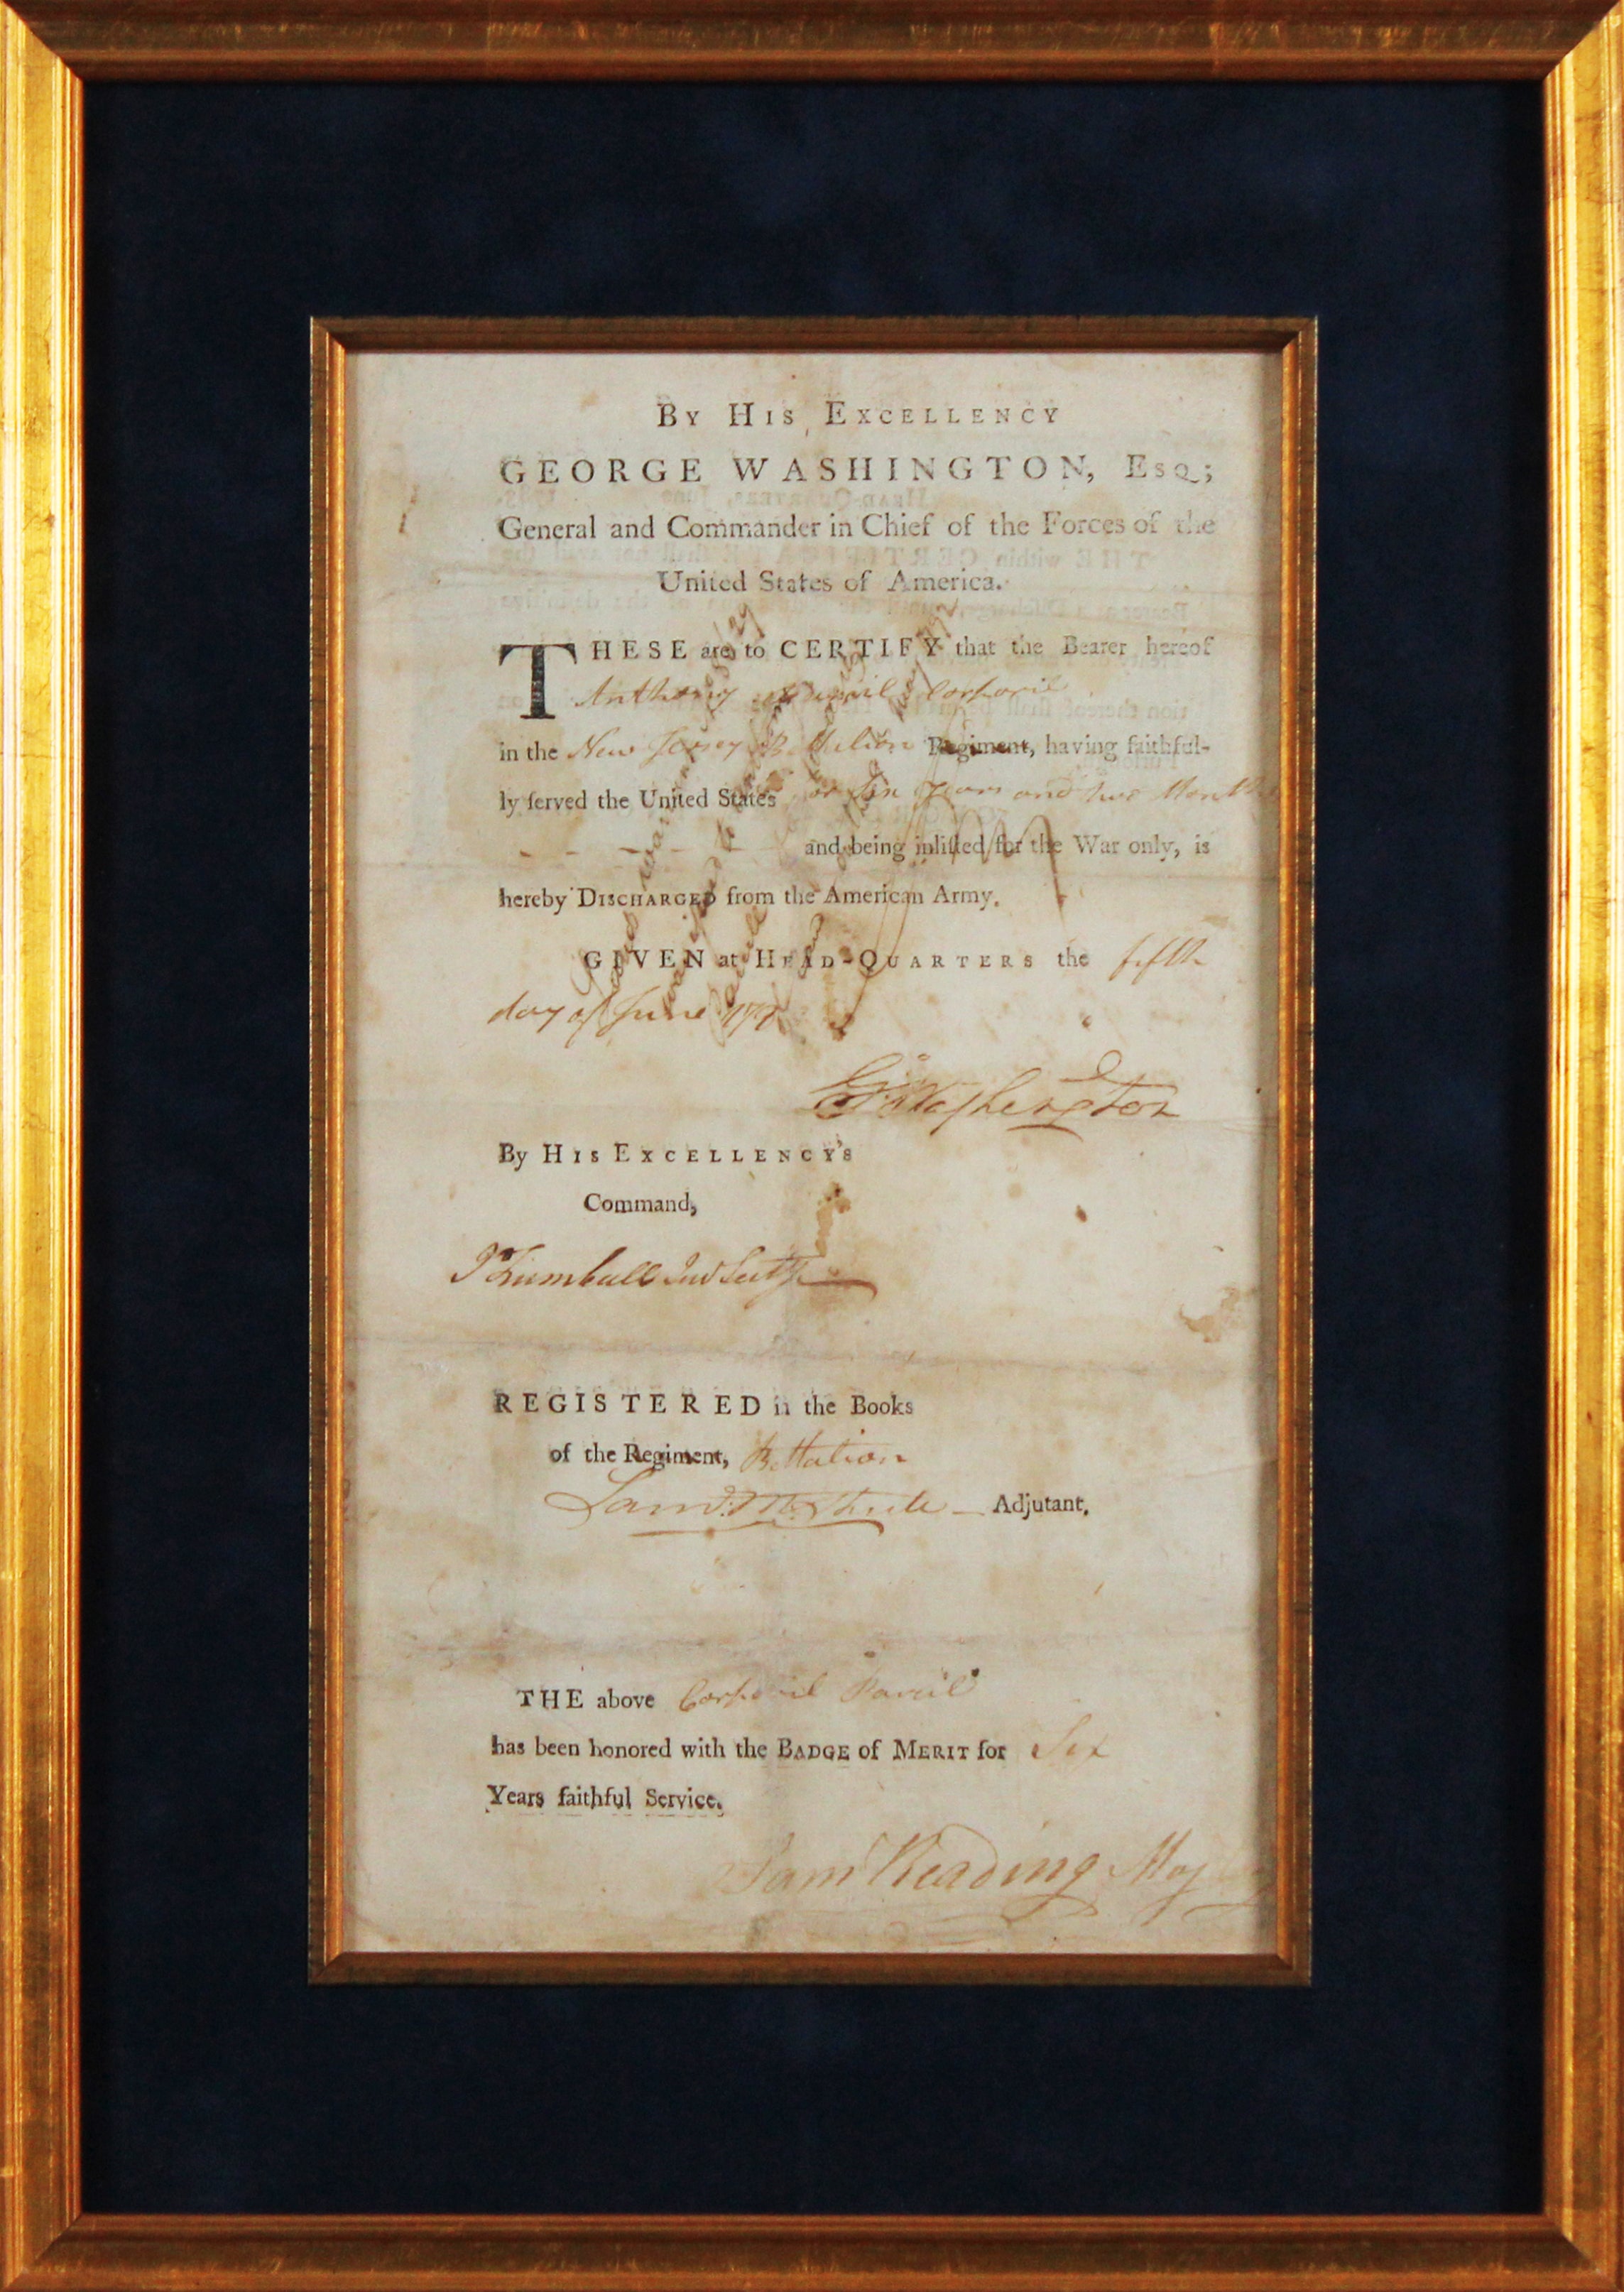 BY HIS EXCELLENCY
GEORGE WASHINGTON, ESQ;
General and Commander in Chief of the Forces of the
United States of America.
THESE are to CERTIFY that the Bearer hereof
Anthony Corporil
in the New Jersey Battalion Regiment, having faithful-
ly served the United States for Six Years and two Months
and being inlisted for the War only, is
hereby DISCHARGED from the American Army.
GIVEN at HEAD-QUARTERS the fifth
day of June
GWashington
By HIS EXCELLENCY'S
Command,
JTrumbull Jun Secty
REGISTERED in the Books
of the Regiment, Battalion
Adjutant,
THE above Corporil
has been honored with the BADGE of MERIT for Six
Years faithful Service.
Sam Reading Maj